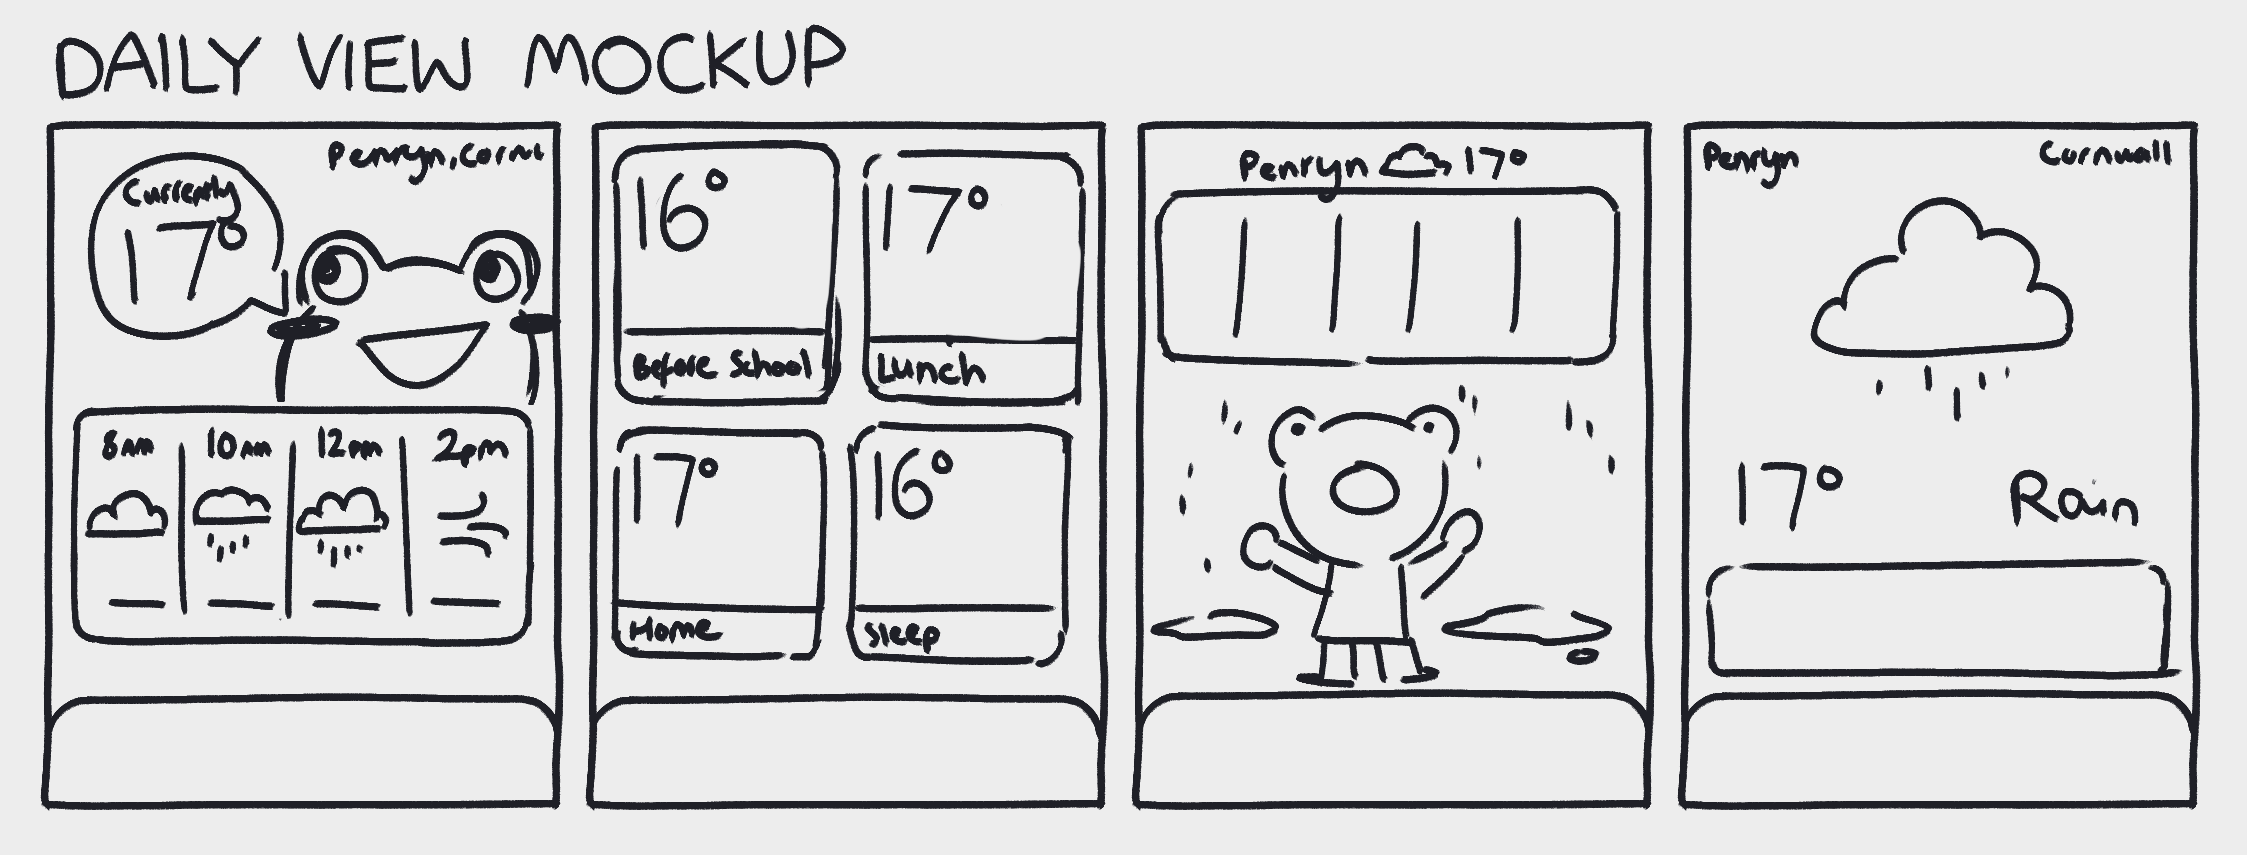 DAILY VIEW MOCKUP
Penryn, Cornw
Currently
17°
8AM 10AM 12PM 2pm
16° 17°
Before School Lunch
17° 16°
Home Sleep
Penryn 17°
Penryn Cornwall
17° Rain